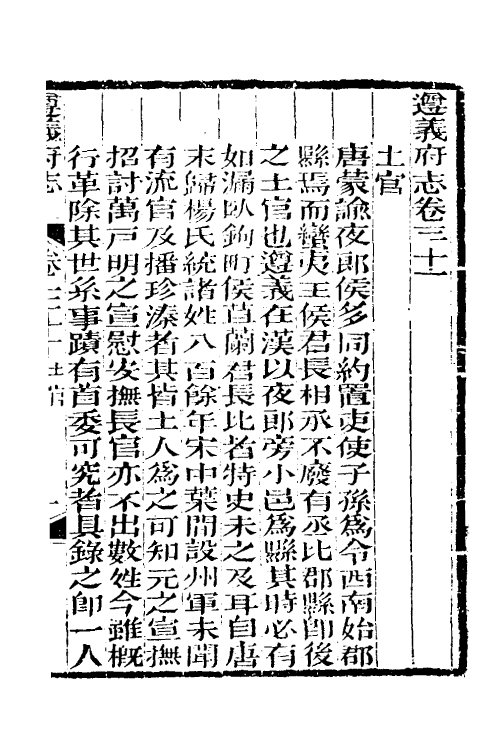 遵義府志卷三十一
土官
唐蒙諭夜郎侯多同約置吏使子孫爲令西南始郡
縣焉而蠻夷王侯君長相承不廢有丞比郡縣卽後
之土官也遵義在漢以夜郎旁小邑爲縣其時必有
如漏臥鉤町侯苴蘭君長比者特史未之及耳自唐
末歸楊氏統諸姓八百餘年宋中葉開設州軍未聞
有流官及播珍溱者其皆土人爲之可知元之宣撫
招討萬戸明之宣慰安撫長官亦不出數姓今雖槪
行革除其世系事蹟有首委可究者具錄之卽一人
遵義府志
卷三十一 土官
一